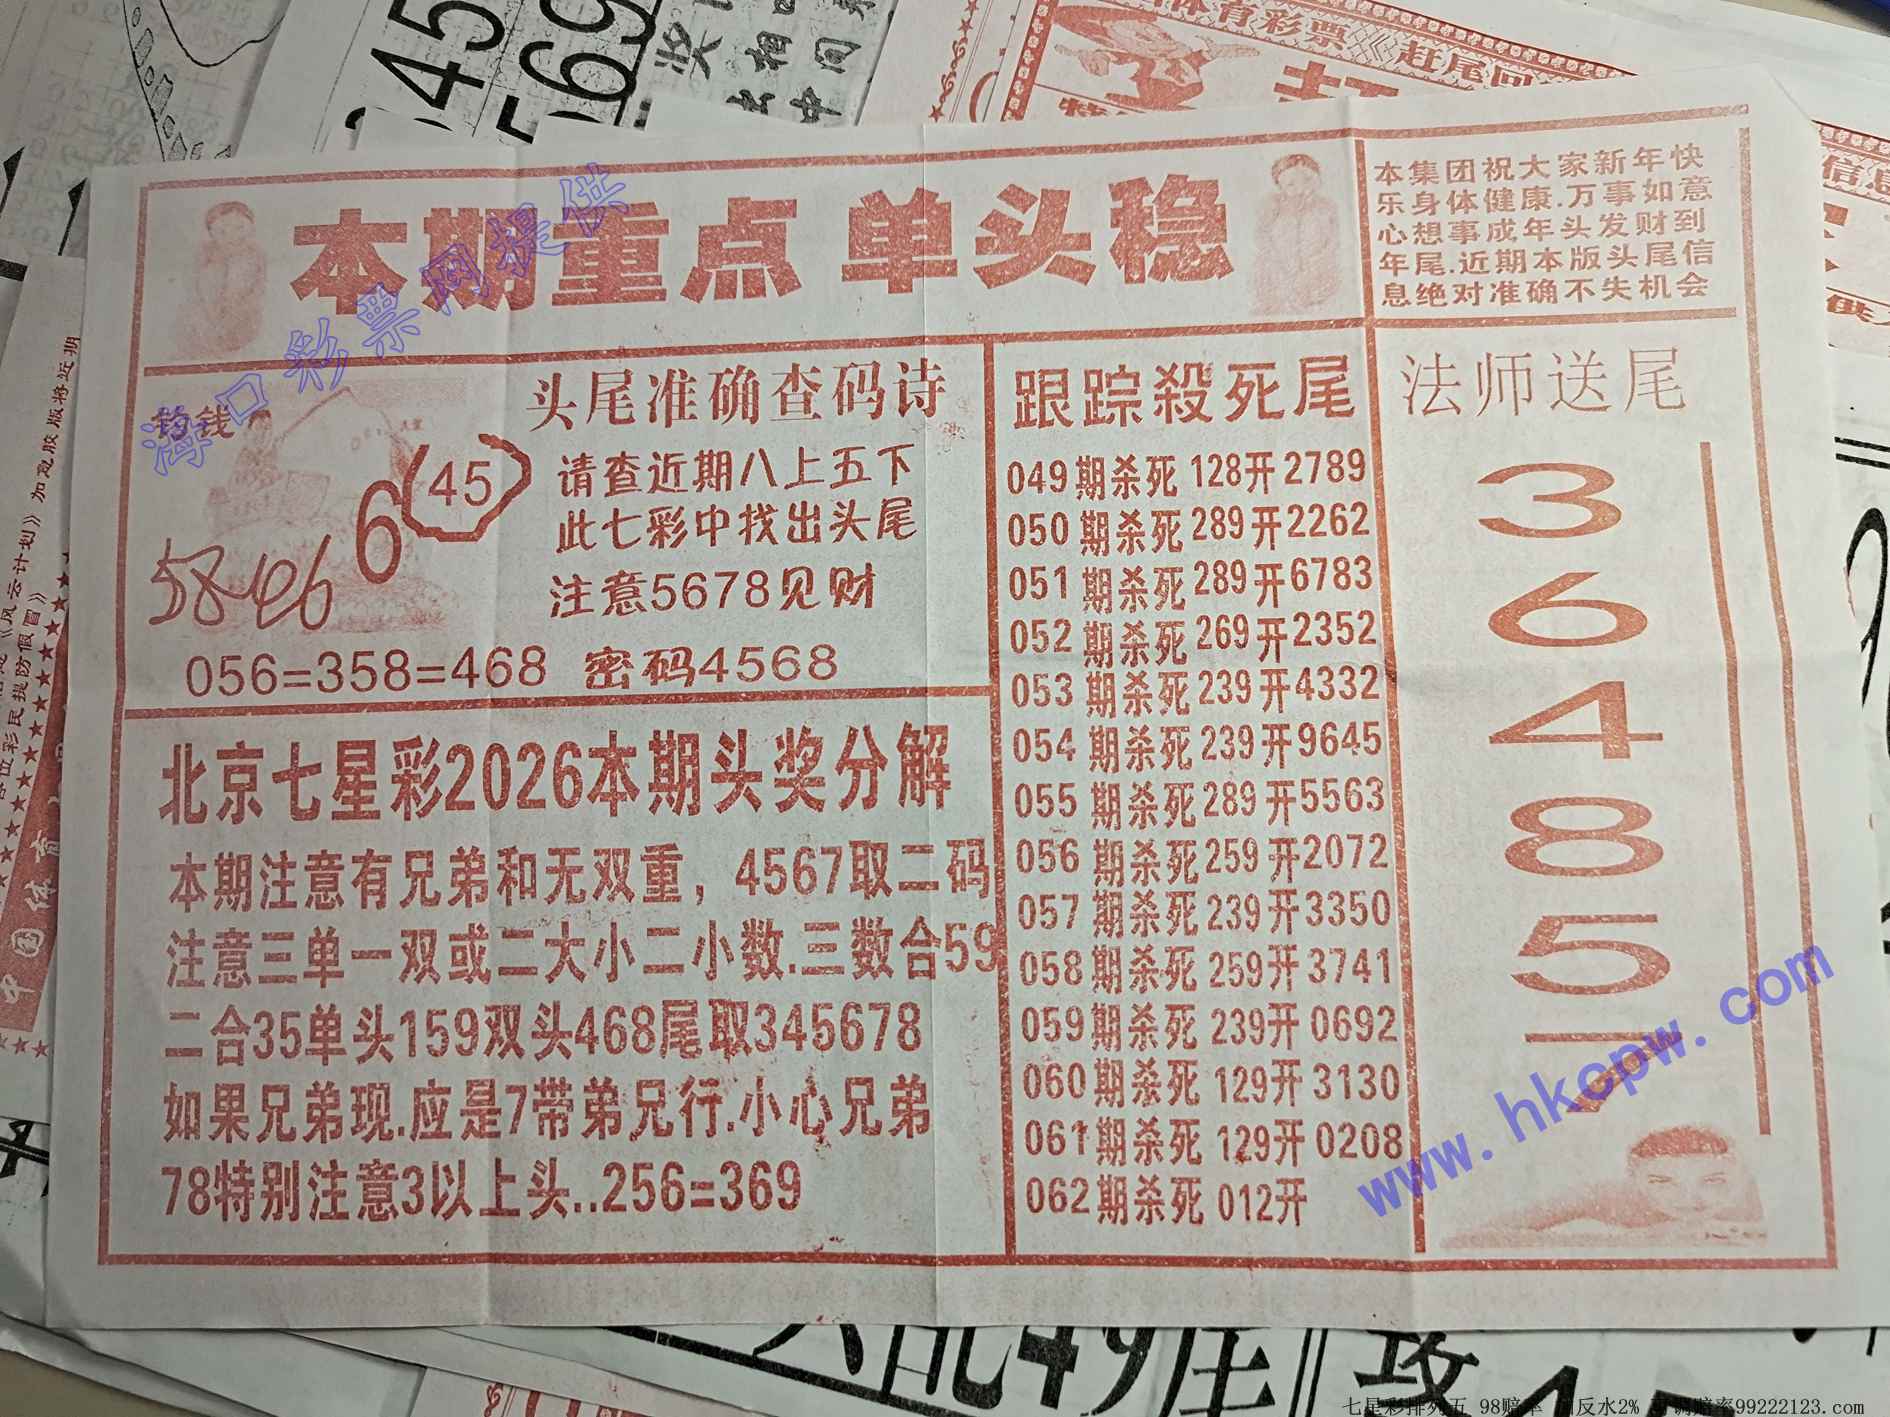 本期重点 单头稳
本集团祝大家新年快
乐身体健康.万事如意
心想事成年头发财到
年尾.近期本版头尾信
息绝对准确不失机会
钓钱
6
(45)
58 46
头尾准确查码诗
请查近期八上五下
此七彩中找出头尾
注意5678见财
056=358=468 密码4568
北京七星彩2026本期头奖分解
本期注意有兄弟和无双重，4567取二码
注意三单一双或二大小二小数.三数合59
二合35单头159双头468尾取345678
如果兄弟现.应是7带弟兄行.小心兄弟
78特别注意3以上头..256=369
跟踪殺死尾
049期杀死128开2789
050期杀死289开2262
051期杀死289开6783
052期杀死269开2352
053期杀死239开4332
054期杀死239开9645
055期杀死289开5563
056期杀死259开2072
057期杀死239开3350
058期杀死259开3741
059期杀死239开0692
060期杀死129开3130
061期杀死129开0208
062期杀死012开
法师送尾
3
6
4
8
5
7
海口彩票网提供
www.hkcpw.com
体育彩票《赶尾回
信息
加急胶版将近期
《风云计划》
各位彩民提防假冒》
中国体育
345
569
奖
相
中间
七星彩排列五 98赔率
反水2%
赔率99222123.com